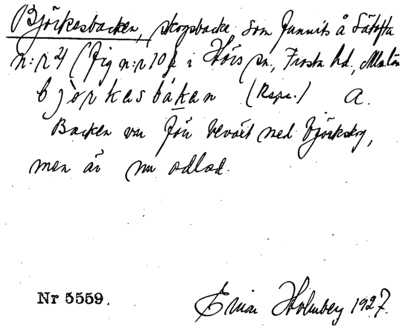 Björkesbacken, skogsbacke, som funnits å Sätofta
n:r 21 (fig n:r 10 i Hörs sn, Frosta hd, Malm
björkasbákan (Rspr.) A.
Backen var förr beväxt med björkskog,
men är nu odlad.
Nr 5559.
Einar Holmberg 1927.